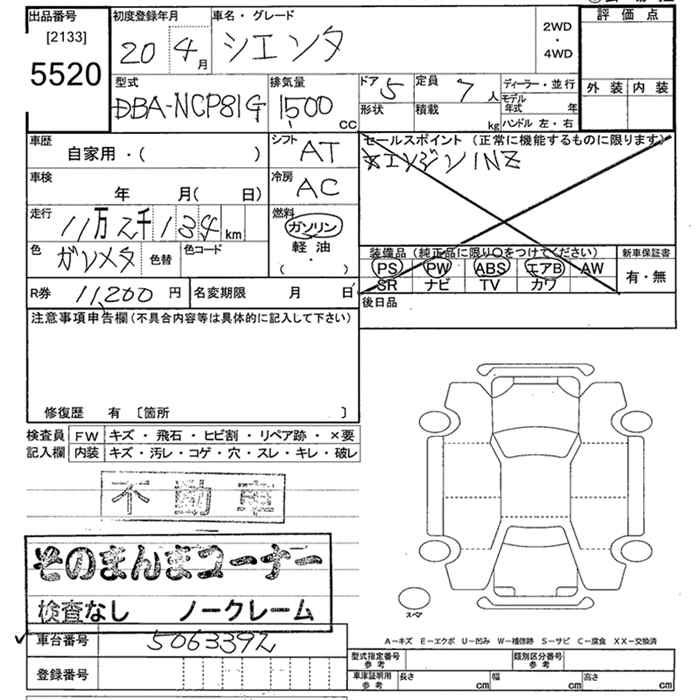 出品番号
[2133]
5520
初度登録年月
20 4月
車名・グレード
シエンタ
2WD
・
4WD
評価点
外装 内装
型式
DBA-NCP81G
排気量
1500 CC
ドア 5
定員 7人
形状
積載 kg
ディーラー・並行
モデル年式 年
ハンドル 左・右
車歴
自家用・( )
シフト AT
セールスポイント (正常に機能するものに限ります)
エンジン1NZ
車検
年 月( 日)
冷房 AC
走行
11万2千134km
燃料
ガソリン
軽油
( ・ )
色 ガンメタ
色替
色コード
装備品 (純正品に限り○をつけてください)
新車保証書
PS PW ABS エアB AW
SR ナビ TV カワ
有・無
R券 11,200円
名変期限 月 日
後日品
注意事項申告欄(不具合内容等は具体的に記入して下さい)
修復歴 有 〔箇所 〕
検査員
記入欄
FW キズ・飛石・ヒビ割・リペア跡・×要
内装 キズ・汚レ・コゲ・穴・スレ・キレ・破レ
不動車
そのまんまコーナー
検査なし ノークレーム
車台番号 5063392
登録番号
スペア
A−キズ E−エクボ U−凹み W−補修跡 S−サビ C−腐食 XX−交換済
型式指定番号
参考
類別区分番号
参考
車庫証明用
参考
長さ cm
幅 cm
高さ cm